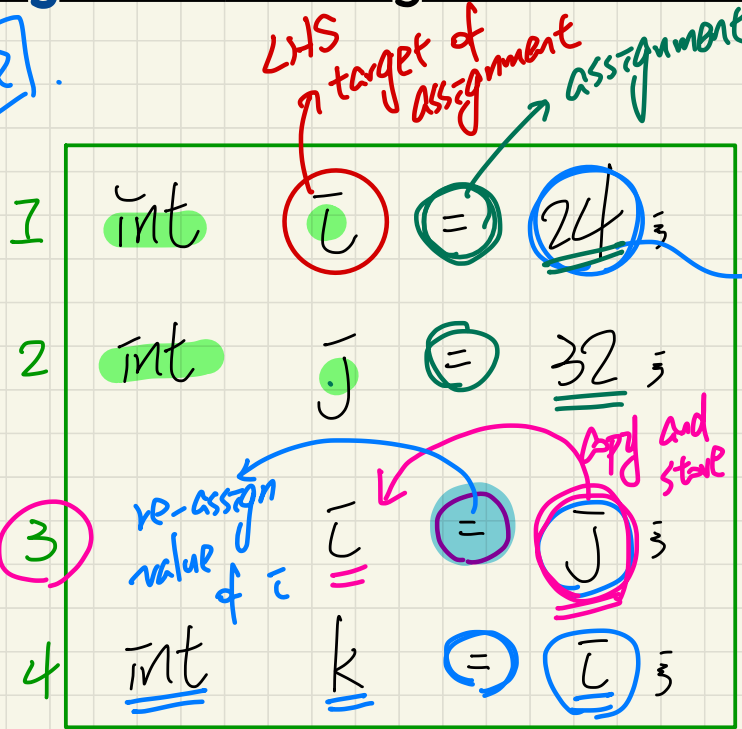 LHS
target of
assignment
assignment
1 int i = 24 ;
2 int j = 32 ;
copy and
store
re-assign
value
of i
3 i = j ;
4 int k = i ;